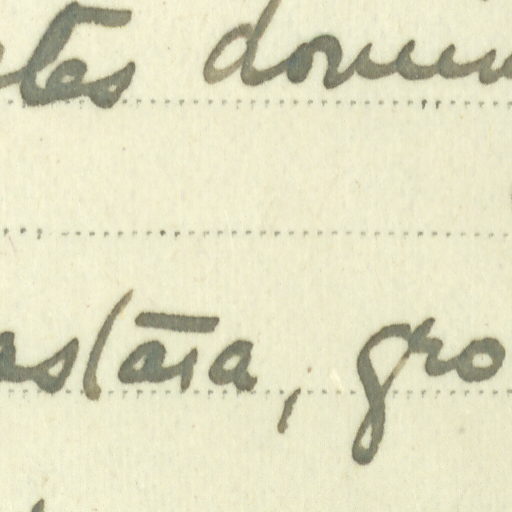 tes domin
astara, gro